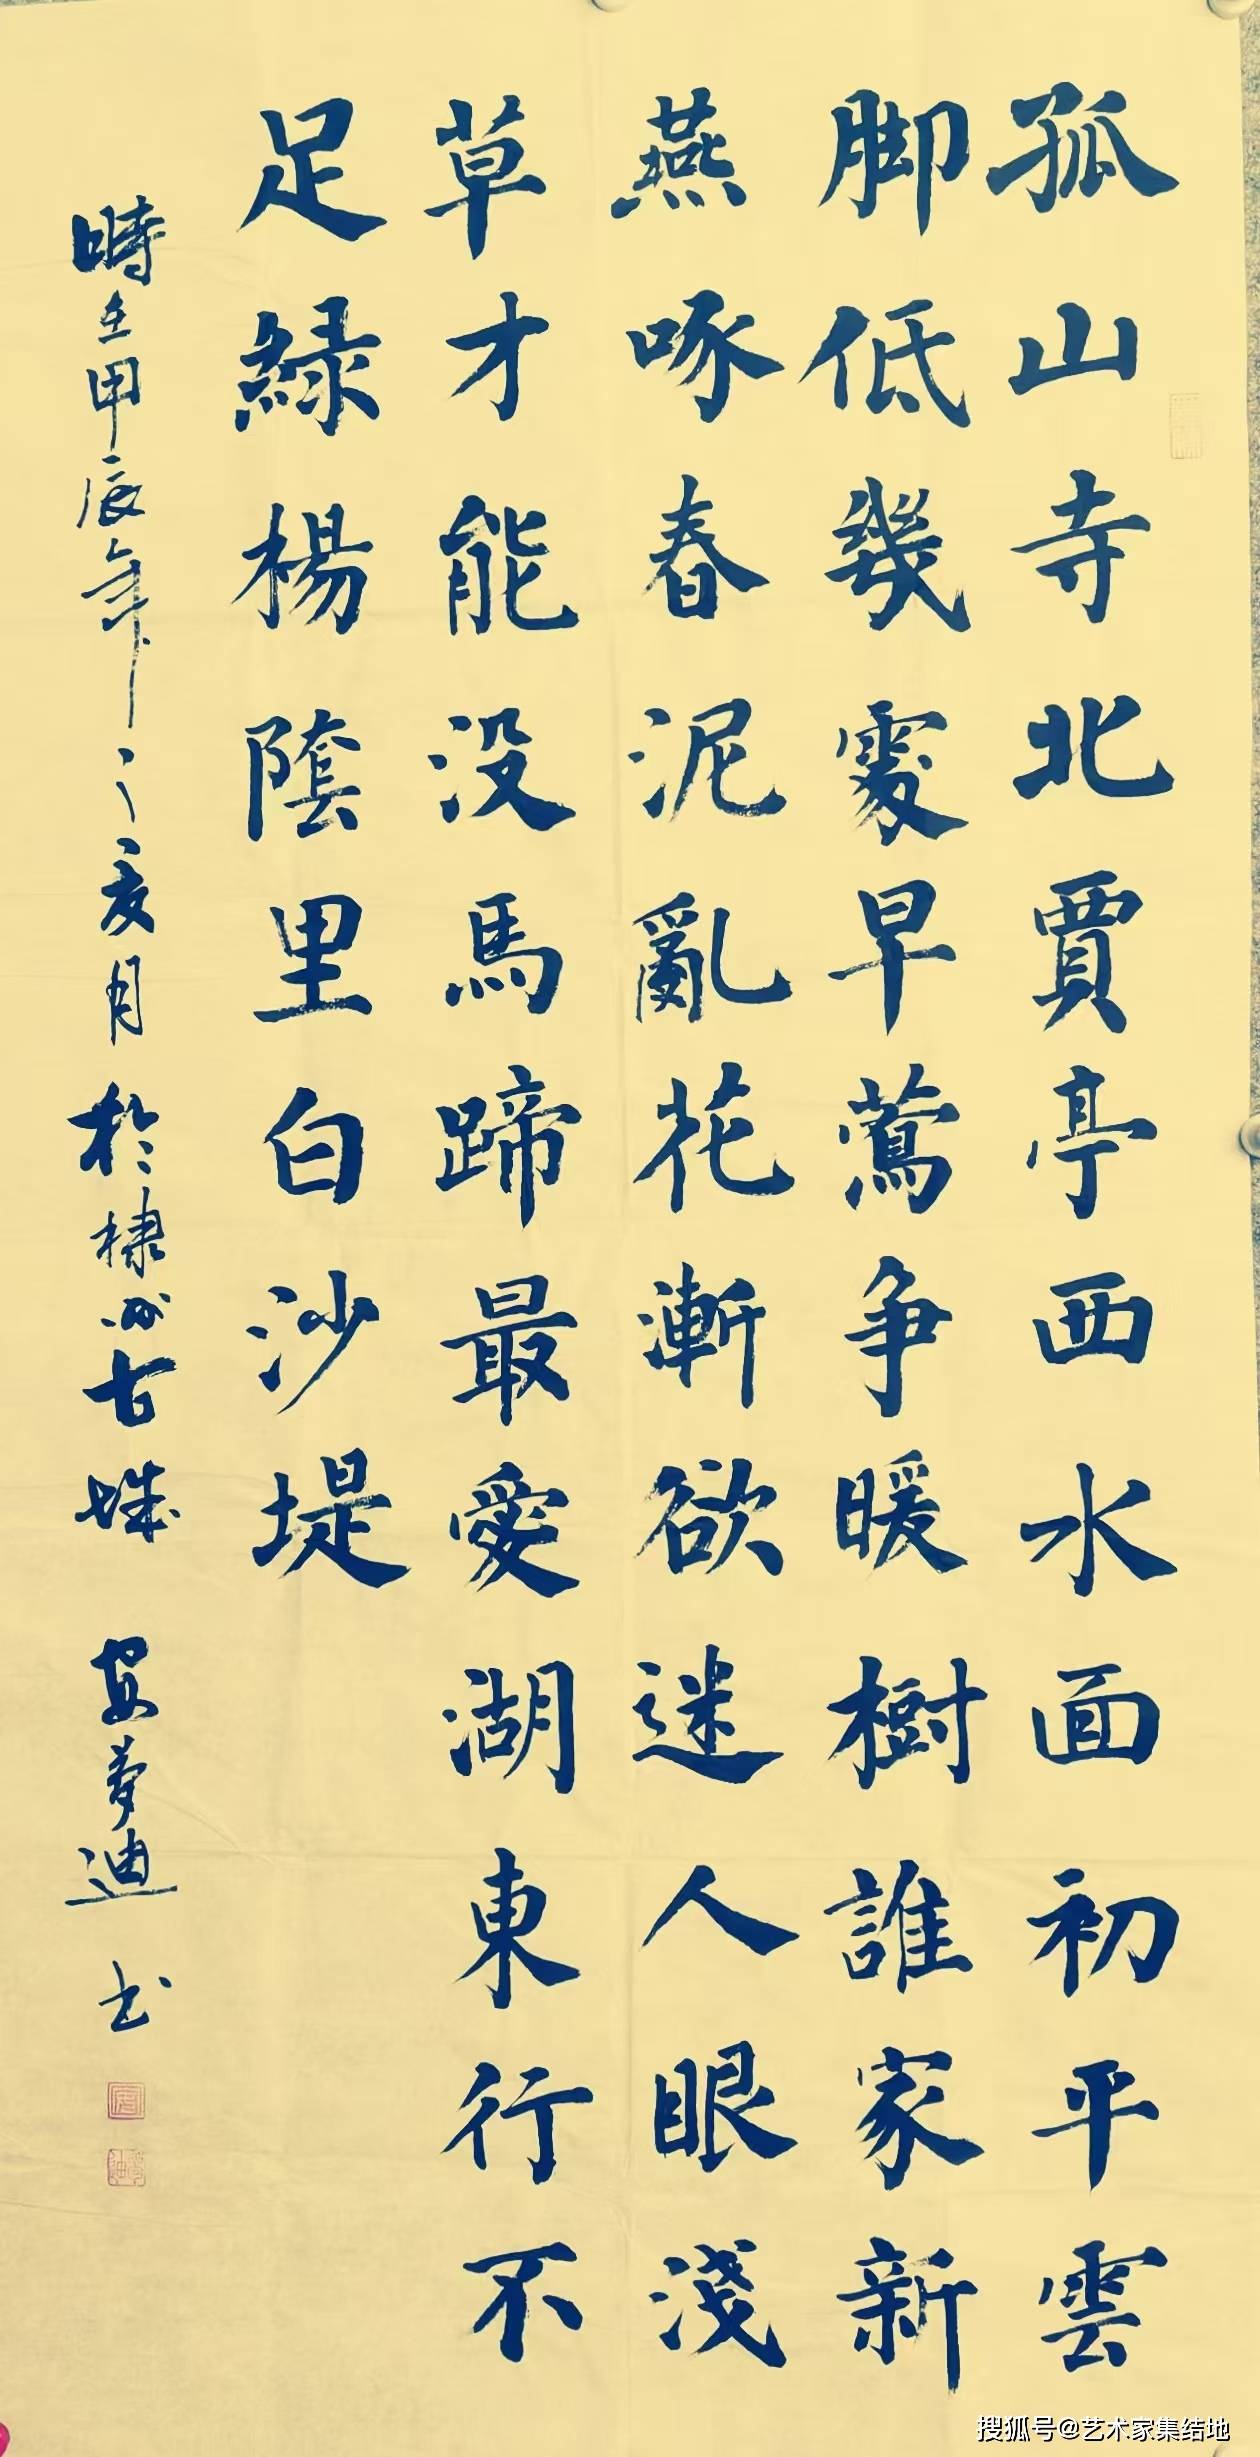 孤山寺北賈亭西水面初平雲
脚低幾處早鶯争暖樹誰家新
燕啄春泥亂花漸欲迷人眼淺
草才能没馬蹄最愛湖東行不
足綠楊蔭里白沙堤
時在甲辰年之亥月於棣州古城 安夢迪 书
搜狐号@艺术家集结地